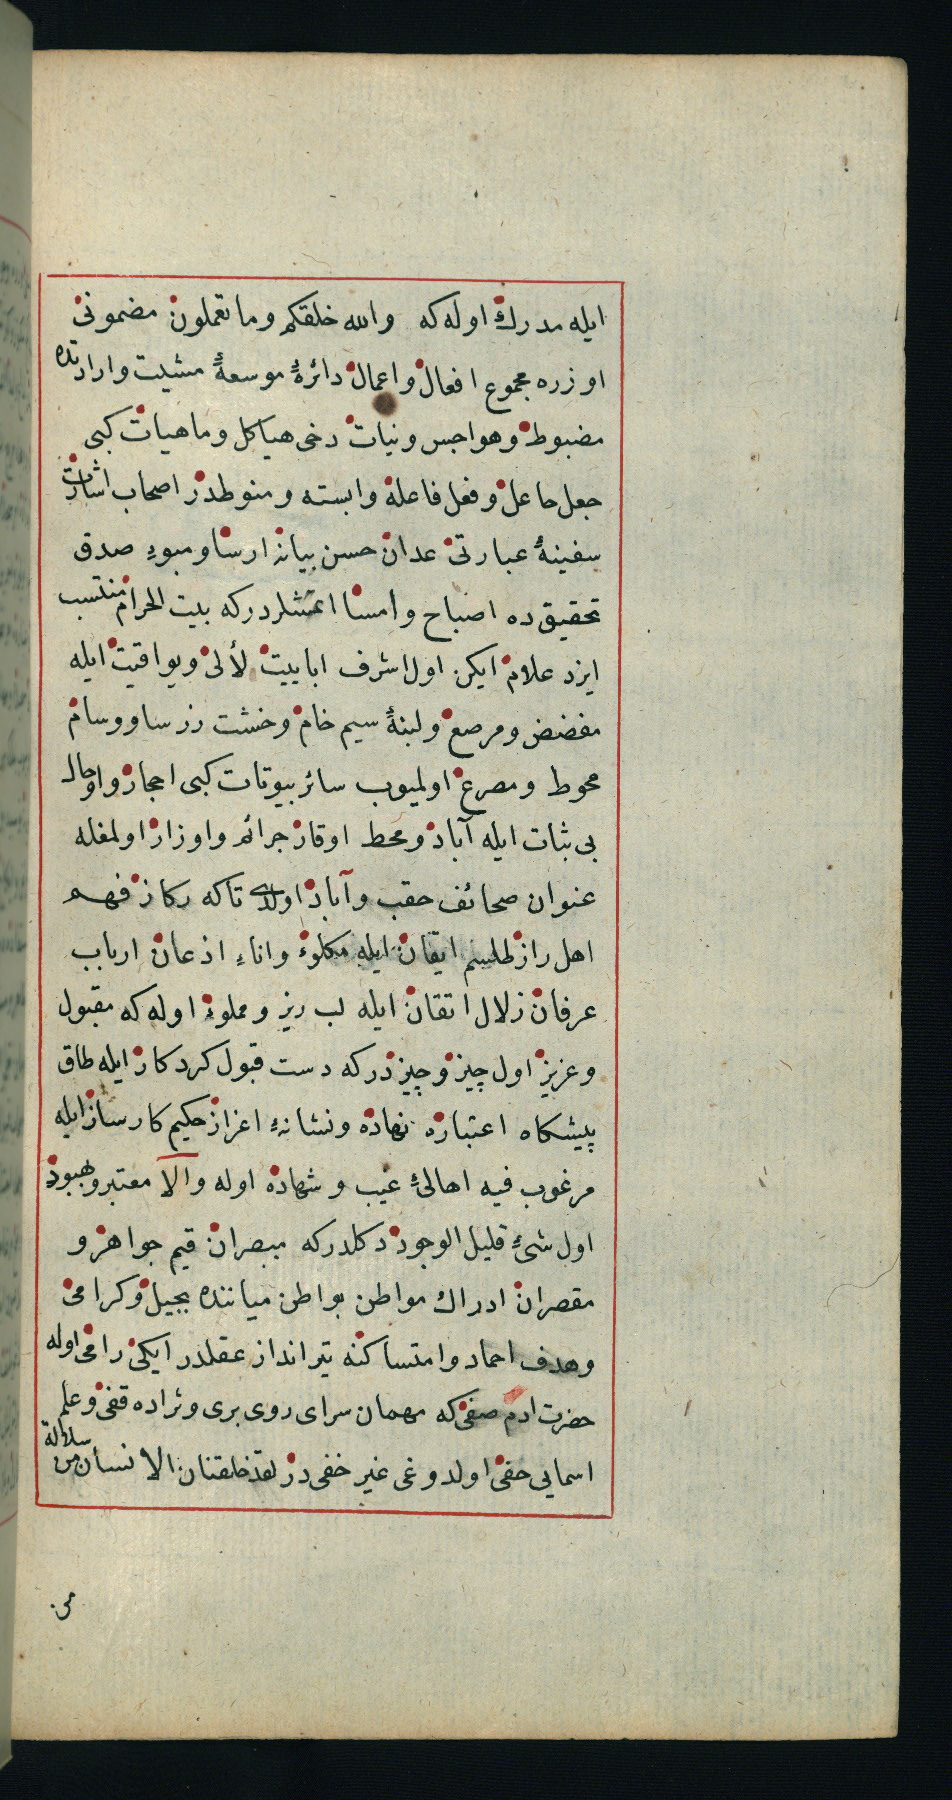 ايله مدرك اوله كه والله خلقكم وما تعملون مضمونى
اوزره مجموع افعال واعمال دائرهٔ موسعهٔ مشيت وارادتده
مضبوط وهواجس ونيات دخى هياكل وماهيات كبى
جعل جاعل وفعل فاعله وابسته ومنوطدر اصحاب اشارت
سفينهٔ عبارتى عدان حسن بيانه ارسا ومبوء صدق
تحقيق ده اصباح وامسا ايتمشلردركه بيت الحرام منتسب
ايزد علام ايكن اول اشرف ابابيت لألئ ويواقيت ايله
مفضض ومرصع ولبنهٔ سيم خام وخشت زر ساو وسام
محوط ومصرع اولميوب سائر بيوتات كبى احجار واوحال
بى ثبات ايله آباد ومحط اوقار جرائم واوزار اولمغله
عنوان صحائف حقب وآباد اولدى تاكه ركاز فهم
اهل راز طلسم ايقان ايله مكلوء واناء اذعان ارباب
عرفان زلال اتقان ايله لب ريز ومملوء اوله كه مقبول
وعزيز اول چيز وچيزدركه دست قبول كردكار ايله طاق
پيشكاه اعتباره نهاده ونشانهٔ اعزاز حكيم كارساز ايله
مرغوب فيه اهالئ غيب وشهاده اوله والا معتبر وبهبود
اول شئ قليل الوجود دكلدركه مبصران قيم جواهر و
مقصران ادراك مواطن بواطن مياننده بجيل وكرامى
وهدف احماد وامتساكنه تيرانداز عقلدر ايكى رامى اوله
حضرت ادم صفى كه مهمان سراى روى برى وثراده قفى وعلم
اسمايى حفى اولدوغى غير خفى در لقد خلقنا الانسان من سلالة
من